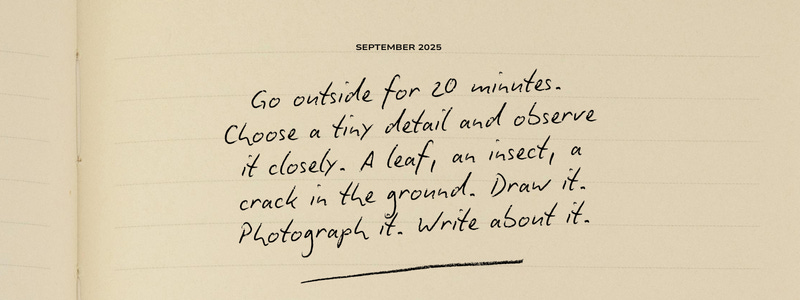 SEPTEMBER 2025
Go outside for 20 minutes.
Choose a tiny detail and observe
it closely. A leaf, an insect, a
crack in the ground. Draw it.
Photograph it. Write about it.